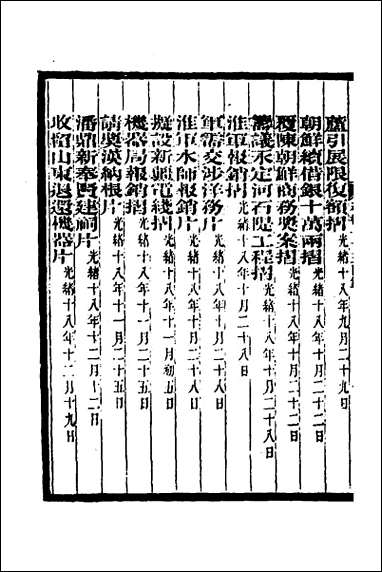 蘆引展限復額摺光緒十八年九月二十九日
朝鮮續借銀十萬兩摺光緒十八年十月二十二日
覆陳朝鮮商務奬案摺光緒十八年十月二十二日
籌議永定河石隄工程摺光緒十八年十月二十八日
淮軍報銷摺光緒十八年十月二十八日
軍需交涉洋務片光緒十八年十月二十八日
淮軍水師報銷片光緒十八年十月二十八日
擬設新興電綫摺光緒十八年十一月初五日
機器局報銷摺光緒十八年十一月二十五日
請奬漢納根片光緒十八年十一月二十五日
潘鼎新奉賢建祠片光緒十八年十二月十二日
收留山東退還機器片光緒十八年十二月十九日